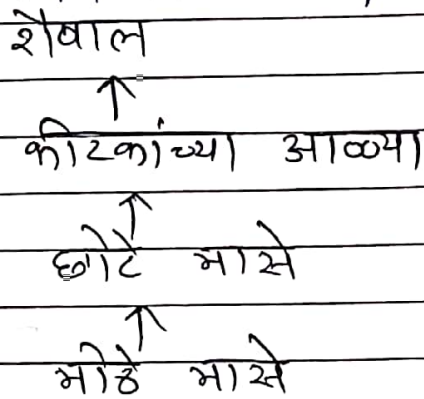 शैवाल
↑
कीटकांच्या आळ्या
↑
छोटे मासे
↑
मोठे मासे